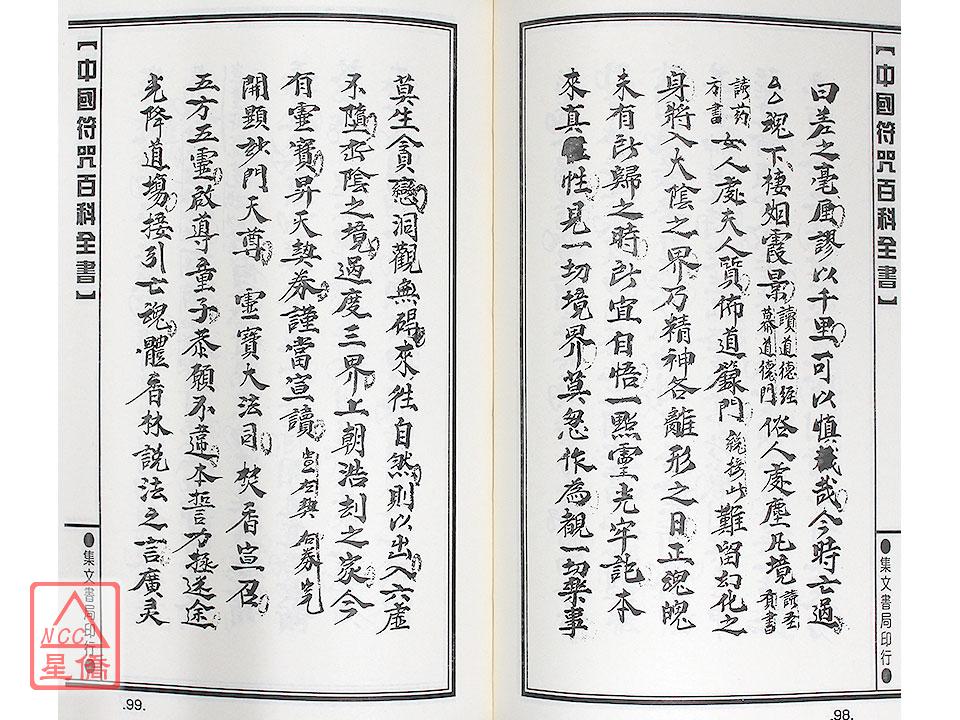 【中國符咒百科全書】
曰差之毫厘謬以千里可以慎哉今時亡過
魂下棲烟霞景讀道德經慕道德門俗人處塵凡境
女人處夫人質佈道籙門難留幻化之
身將入大陰之界乃精神各離形之日正魂魄
未有所歸之時所宜自悟一點靈光牢記本
來真性見一切境界莫忽作為觀一切樂事
●集文書局印行●
.98.
莫生貪戀洞觀無碍來往自然則以出入六虛
不墮幽陰之境過度三界上朝浩刻之家今
有靈寶昇天契券謹當宣讀
開顯玅門天尊 靈寶大法司 焚香宣召
五方五靈啟導童子恭願不違本誓方拯迷途
光降道場接引亡魂體香林說法之言廣灵
【中國符咒百科全書】
●集文書局印行●
.99.
NCC
星僑